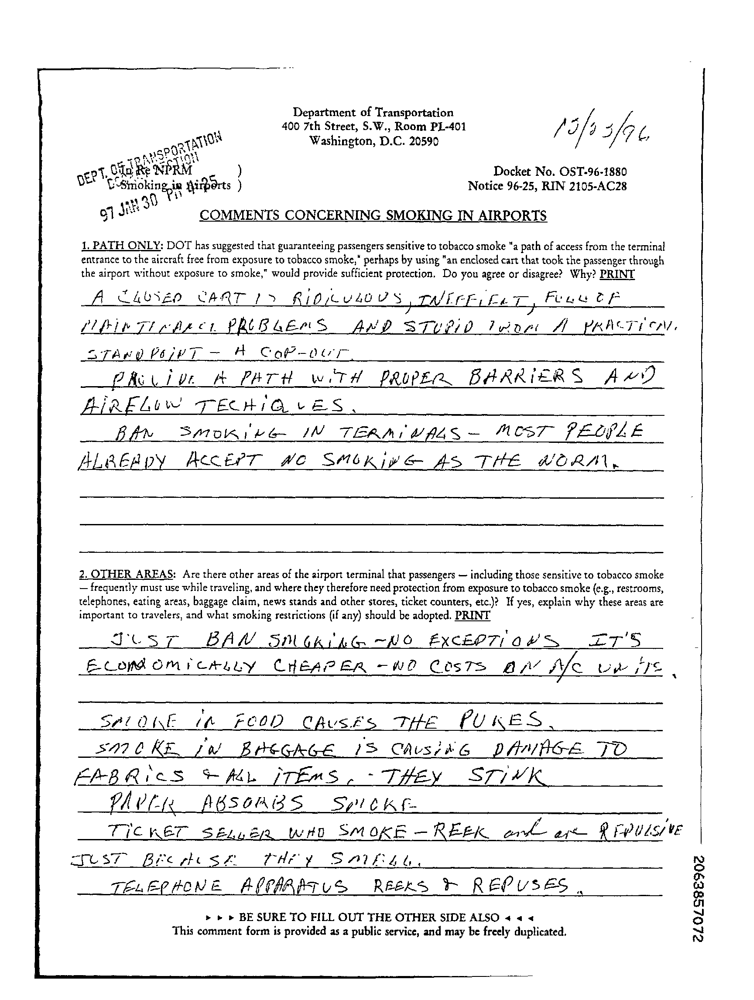 Department of Transportation
400 7th Street, S.W., Room PL-401
Washington, D.C. 20590
DEPT. OF TRANSPORTATION
In Re NPRM )
Smoking in Airports )
97 JAN 30
Docket No. OST-96-1880
Notice 96-25, RIN 2105-AC28
COMMENTS CONCERNING SMOKING IN AIRPORTS
1. PATH ONLY: DOT has suggested that guaranteeing passengers sensitive to tobacco smoke "a path of access from the terminal
entrance to the aircraft free from exposure to tobacco smoke," perhaps by using "an enclosed cart that took the passenger through
the airport without exposure to smoke," would provide sufficient protection. Do you agree or disagree? Why? PRINT
A CLOSED CART IS RIDICULOUS, INEFFIENT, FULL OF
MAINTINANCE PROBLEMS AND STUPID FROM A PRACTICAL
STANDPOINT - A COP-OUT.
A PATH WITH PROPER BARRIERS AND
AIRFLOW TECHIQUES.
BAN SMOKING IN TERMINALS - MOST PEOPLE
ALREADY ACCEPT NO SMOKING AS THE NORM.
2. OTHER AREAS: Are there other areas of the airport terminal that passengers — including those sensitive to tobacco smoke
— frequently must use while traveling, and where they therefore need protection from exposure to tobacco smoke (e.g., restrooms,
telephones, eating areas, baggage claim, news stands and other stores, ticket counters, etc.)? If yes, explain why these areas are
important to travelers, and what smoking restrictions (if any) should be adopted. PRINT
JUST BAN SMOKING - NO EXCEPTIONS IT'S
ECONOMICALLY CHEAPER - NO COSTS ON A/C UNITS.
SMOKE IN FOOD CAUSES THE PUKES.
SMOKE IN BAGGAGE IS CAUSING DAMAGE TO
FABRICS & ALL ITEMS. - THEY STINK
PAPER ABSORBS SMOKE
TICKET SELLER WHO SMOKE - REEK and are REPULSIVE
JUST BECAUSE THEY SMELL.
TELEPHONE APPARATUS REEKS & REPUSES.
▸ ▸ ▸ BE SURE TO FILL OUT THE OTHER SIDE ALSO ◂ ◂ ◂
This comment form is provided as a public service, and may be freely duplicated.
2063857072